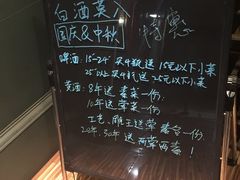 白酒莫入
国庆&中秋
啤酒: 15-24 买4瓶送 15元以下小菜
25以上买4瓶送 25元以下小菜
黄酒: 8年送 素菜一份.
10年送 荤菜一份.
工艺. 雕王送荤素各一份.
20年. 30年送 两荤两素!